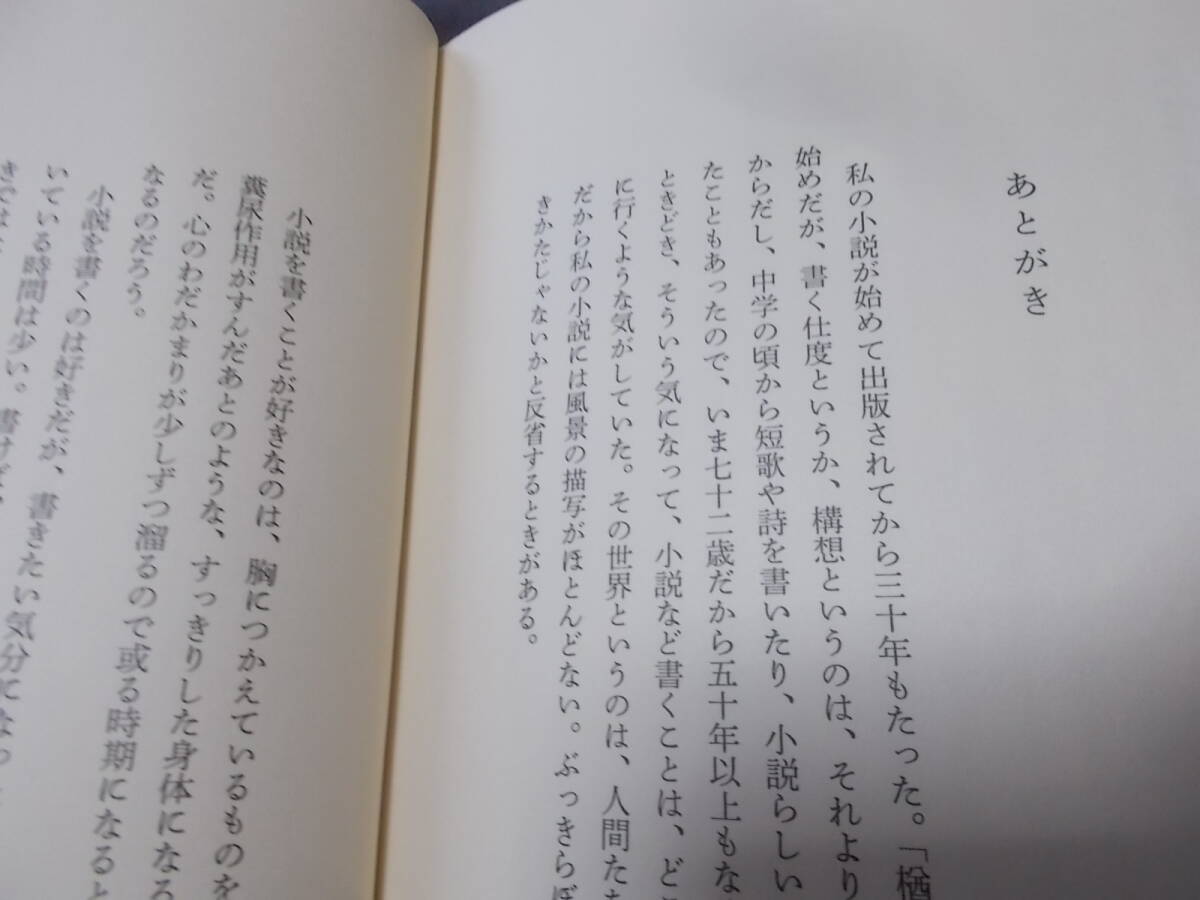 あとがき
私の小説が始めて出版されてから三十年もたった。「楢
始めだが、書く仕度というか、構想というのは、それより
からだし、中学の頃から短歌や詩を書いたり、小説らしい
たこともあったので、いま七十二歳だから五十年以上もな
ときどき、そういう気になって、小説など書くことは、どこ
に行くような気がしていた。その世界というのは、人間たち
だから私の小説には風景の描写がほとんどない。ぶっきらぼ
きかたじゃないかと反省するときがある。
小説を書くことが好きなのは、胸につかえているものを
糞尿作用がすんだあとのような、すっきりした身体になる
だ。心のわだかまりが少しずつ溜るので或る時期になると
なるのだろう。
小説を書くのは好きだが、書きたい気分になっ
いている時間は少い。書けば、
きでは